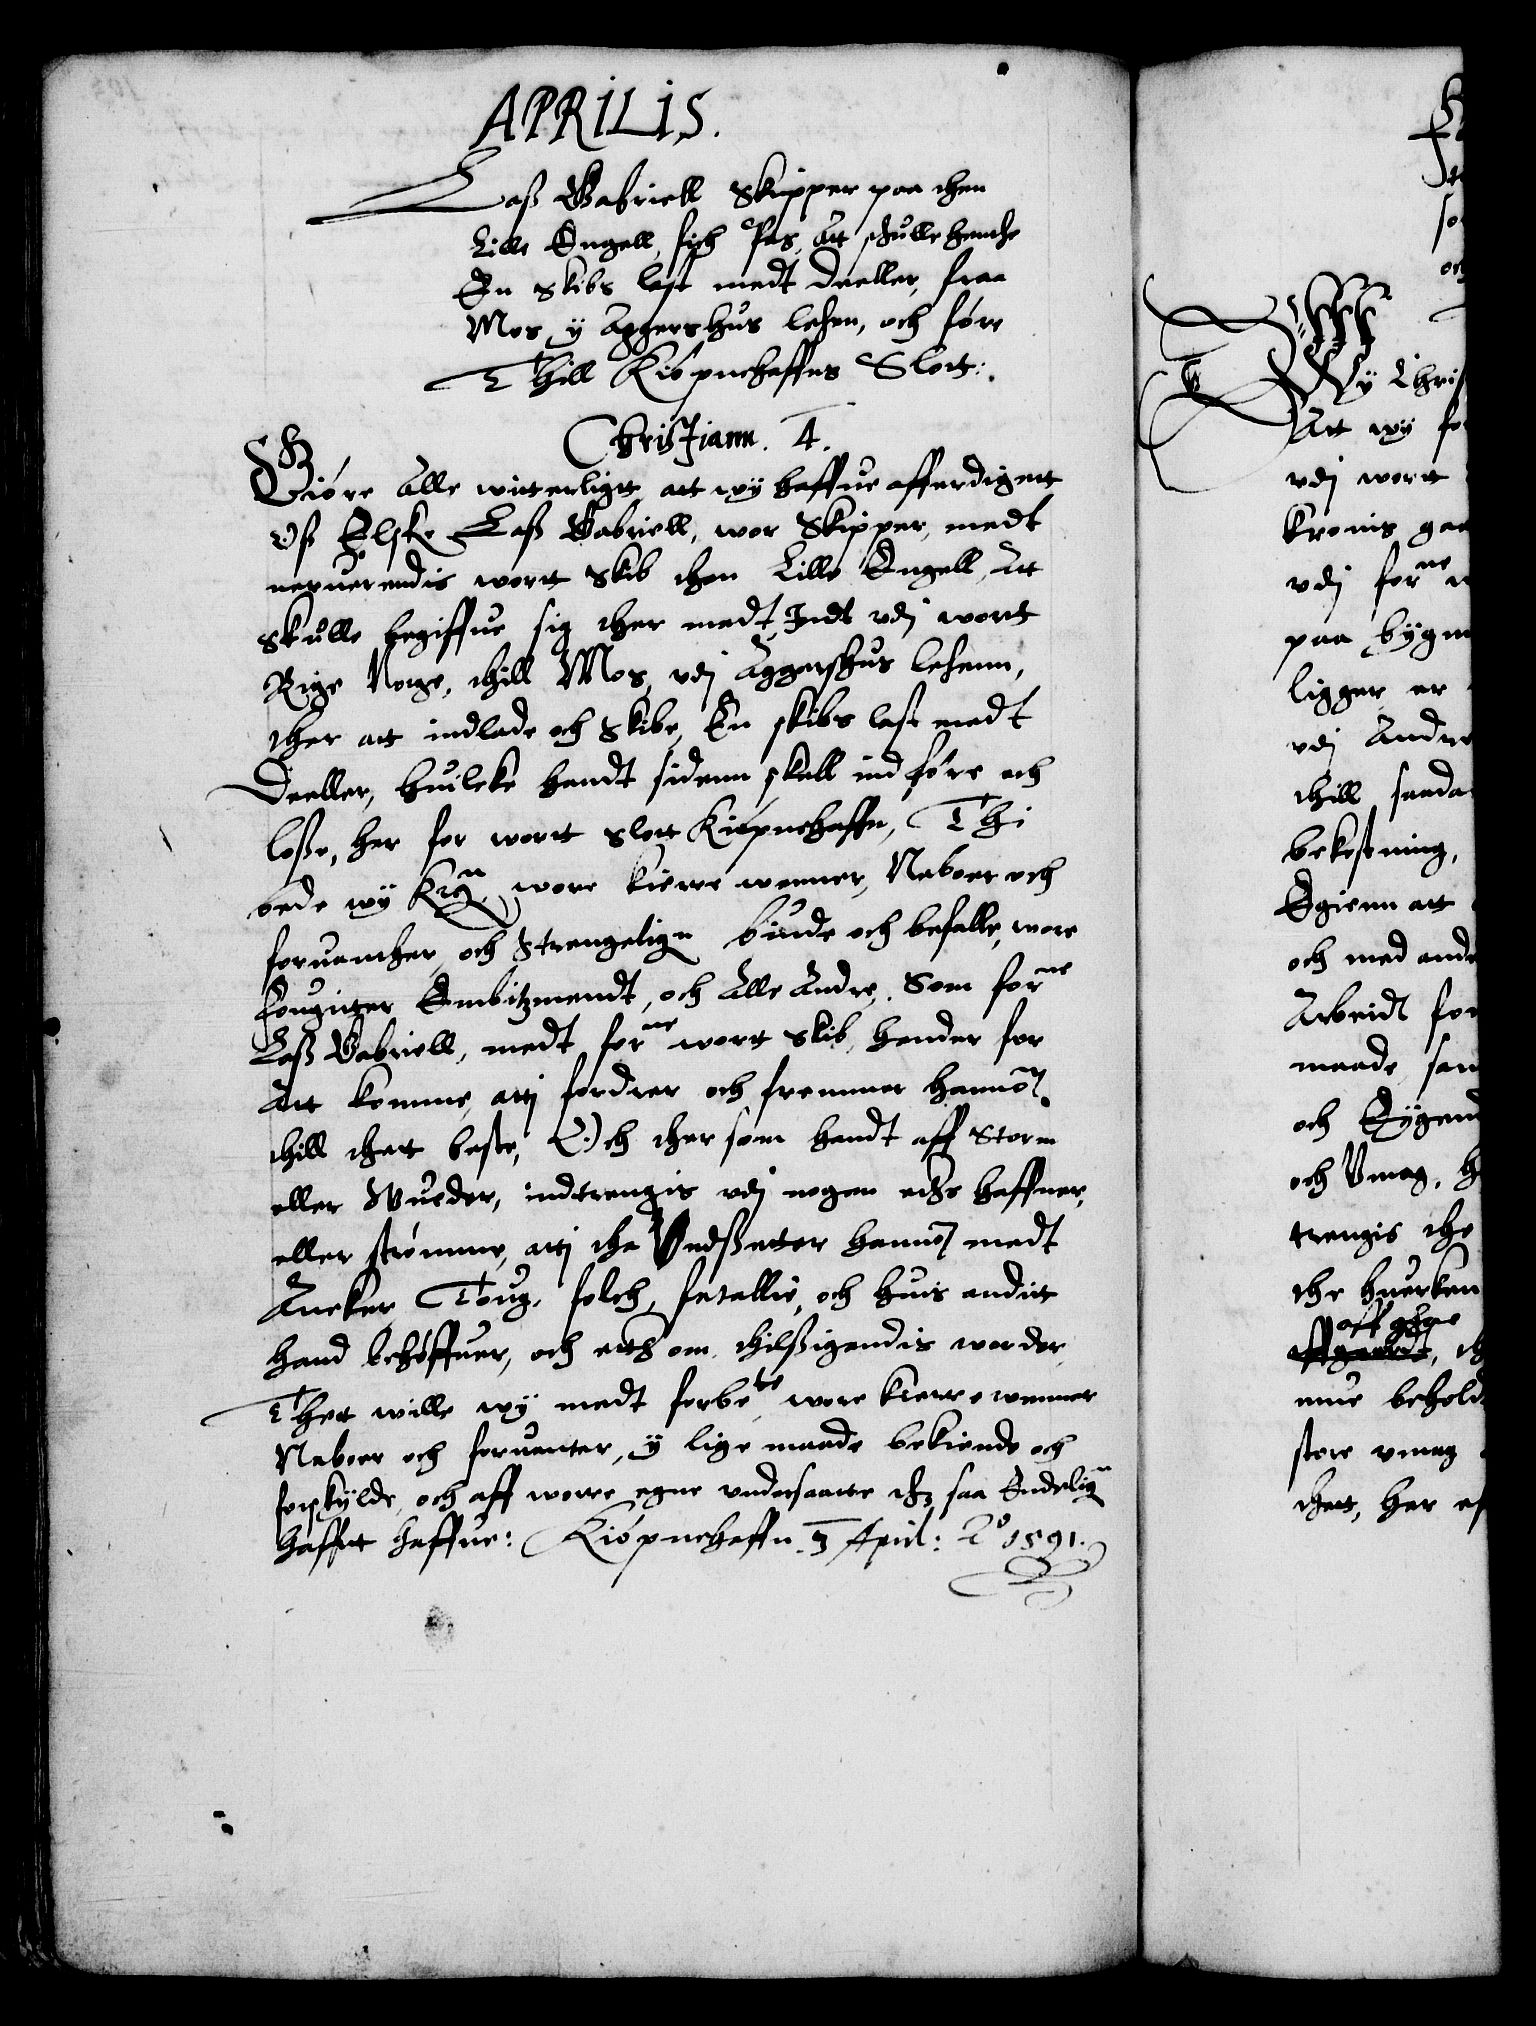 APRILIS.
Lass Gabriell Skipper paa then
Lille Engell, fich Pas, Att schulle henthe
En skibs last medt Deeller, fraa
Mos y Aggershus lehen, och føre
Thill Kiøpnehaffns Slott:
Christiann. 4.
Giøre Alle witterligtt att wy haffue afferdigett
Oss Elske Lass Gabriell, wor Skipper, medt
neruerendis wortt Skib then Lille Engell, Att
skulle begiffue sig ther medt Indt vdj wort
Rige Norge, thill Mos, vdj Aggershus lehenn,
ther att indlade och Skibe, En skibs last medt
Deeller, huilcke handt sidenn skall ind føre och
losse, her for wortt slott Kiøpnehaffn, Thi
bede wy wore kierre wenner, Naboer och
foruanther, och Strengeligen biude och befalle, wore
fougitter Embitzmendt, och Alle Andre, Som forne
Lass Gabriell, medt forne wortt Skib, hender for
Att komme, attj fordrer och fremmer hannom
thill thett beste, Och ther som handt aff Storm
eller Wueder, indtrengis vdj nogen eders haffner,
eller strømme, attj tha Vndssetter hannom medt
Ancker, Toug, folch, fetallie, och huis anditt
hand behøffuer, och eders om thilssigendis worder,
Thett wille wy medt forbete wore kierre wenner
Naboer och foruanter, y lige maade bekiende och
forskylde, och aff worre egne vndersaatte thz saa Endelign
hafftt haffue: Kiøpnehaffn 3 April: Ao 1591.
Wy Chri
Att wy fo
vdj wortt
Kronis gaa
vdj forne
paa bygn
ligger, er
vdj Andre
thill saada
bekostning,
Egienn att
och med andr
Arbeidt for
maade, sam
och Eygend
och Vmag, h
trengis the
the huercken
mue behold
store vmag
thett, her ef